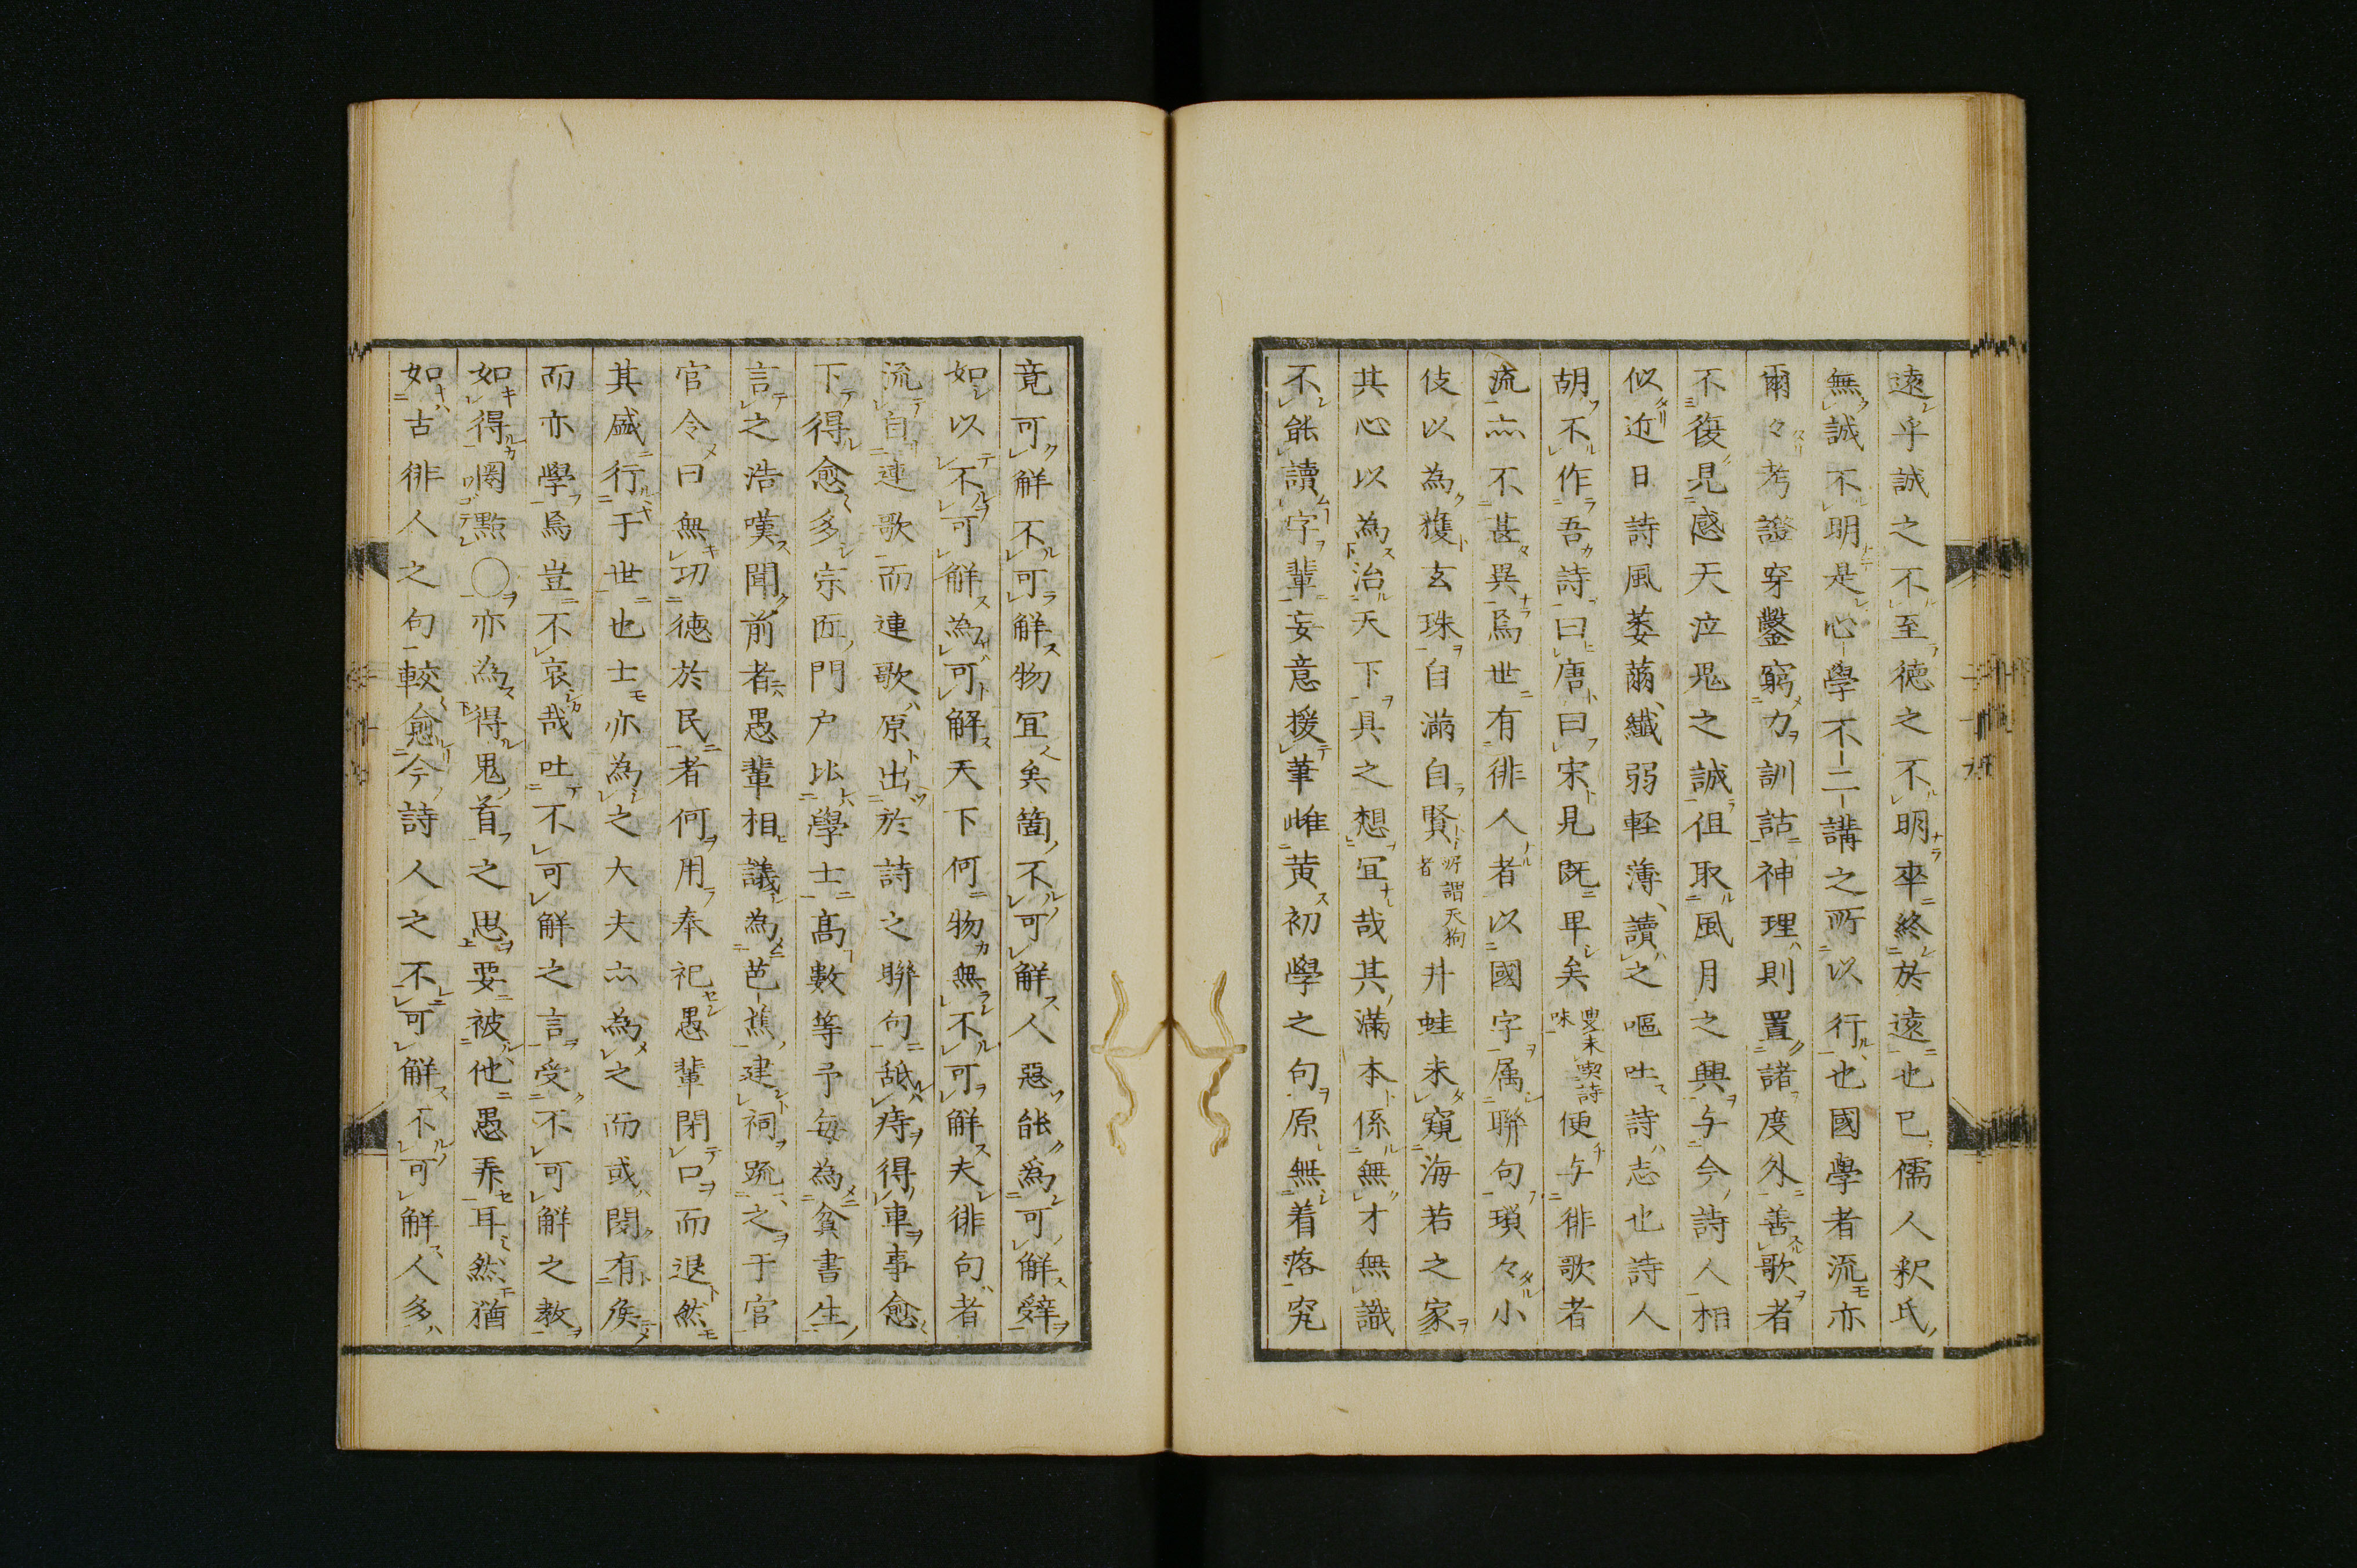 遠乎誠之不至徳之不明卒終於遠也已儒人釈氏
無誠不明是心學不二講之所以行也國學者流亦
爾々考證穿鑿窮力訓詁神理則置諸度外善歌者
不復見感天泣鬼之誠徂取風月之興与今詩人相
似近日詩風萎薾纖弱軽薄讀之嘔吐詩志也詩人
胡不作吾詩曰唐曰宋見既卑矣叟未喫詩味便与徘歌者
流亦不甚異焉世有徘人者以國字属聯句瑣々小
伎以為獲玄珠自滿自賢所謂天狗者井蛙未窺海若之家
其心以為治天下具之想冝哉其滿本係無才無識
不能讀字輩妄意援筆雌黄初學之句原無着落究
竟可解不可解物冝矣箇不可解人惡能為可解辤
如以不可解為可解天下何物無不可解夫徘句者
流自連歌而連歌原出於詩之聯句舐痔得車事愈
下得愈多宗匠門户比學士高數等予毎為貧書生
言之浩嘆聞前者愚輩相議為芭蕉建祠䟽之于官
官令曰無功徳於民者何用奉祀愚輩閉口而退然
其盛行于世也士亦為之大夫亦為之而或閲有侯
而亦學焉豈不哀哉吐不可解之言受不可解之教
如得圏點〇亦為得鬼首之思要被他愚弄耳然猶
如古徘人之句較愈今詩人之不可解不可解人多